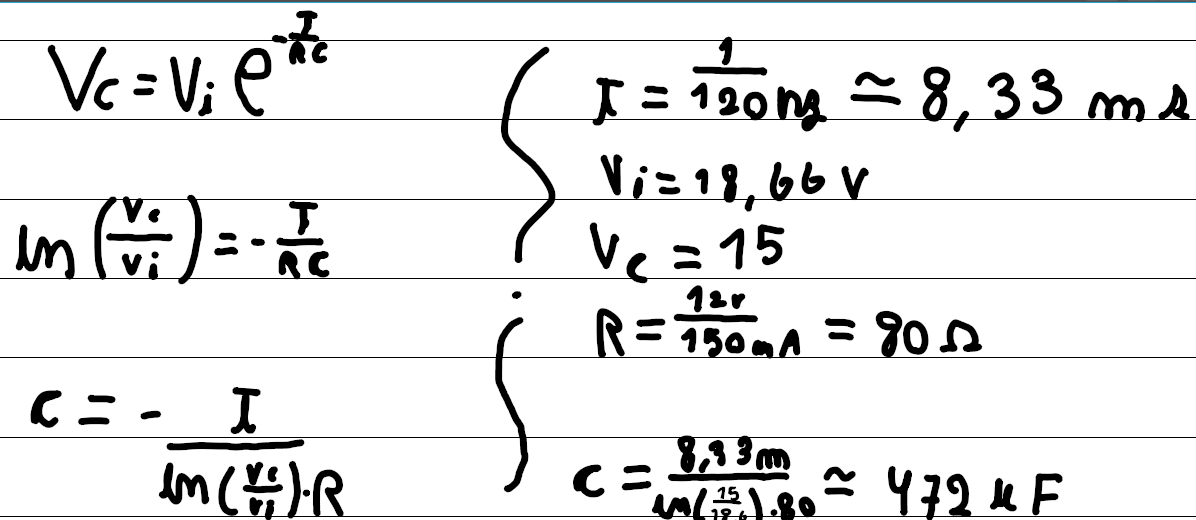 Vc = Vi e^(-T/RC)
ln (Vc/Vi) = - T/RC
C = - T/(ln(Vc/Vi)·R)
T = 1/120Hz ≃ 8,33 ms
Vi = 18,66 V
Vc = 15
R = 12V/150mA = 80 Ω
C = 8,33m/(ln(15/18,6)·80) ≃ 472 uF